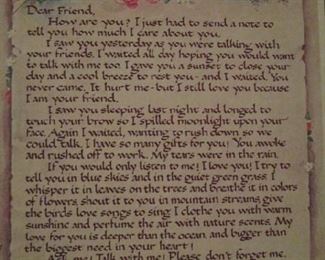 Dear Friend,
How are you? I just had to send a note to
tell you how much I care about you.
I saw you yesterday as you were talking with
your friends. I waited all day hoping you would want
to talk with me too. I gave you a sunset to close your
day and a cool breeze to rest you - and I waited. You
never came. It hurt me - but I still love you because
I am your friend.
I saw you sleeping last night and longed to
touch your brow so I spilled moonlight upon your
face. Again I waited, wanting to rush down so we
could talk. I have so many gifts for you! You awoke
and rushed off to work. My tears were in the rain.
If you would only listen to me! I love you! I try to
tell you in blue skies and in the quiet green grass. I
whisper it in leaves on the trees and breathe it in colors
of flowers, shout it to you in mountain streams, give
the birds love songs to sing. I clothe you with warm
sunshine and perfume the air with nature scents. My
love for you is deeper than the ocean, and bigger than
the biggest need in your heart!
Ask me! Talk with me! Please don't forget me.